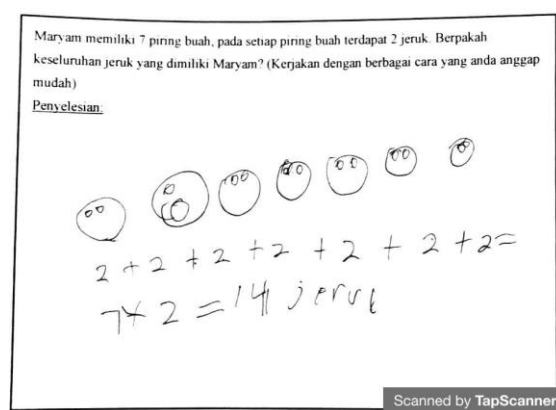 Maryam memiliki 7 piring buah, pada setiap piring buah terdapat 2 jeruk. Berpakah
keseluruhan jeruk yang dimiliki Maryam? (Kerjakan dengan berbagai cara yang anda anggap
mudah)
Penyelesian:
2 + 2 + 2 + 2 + 2 + 2 + 2 =
7 × 2 = 14 jeruk
Scanned by TapScanner